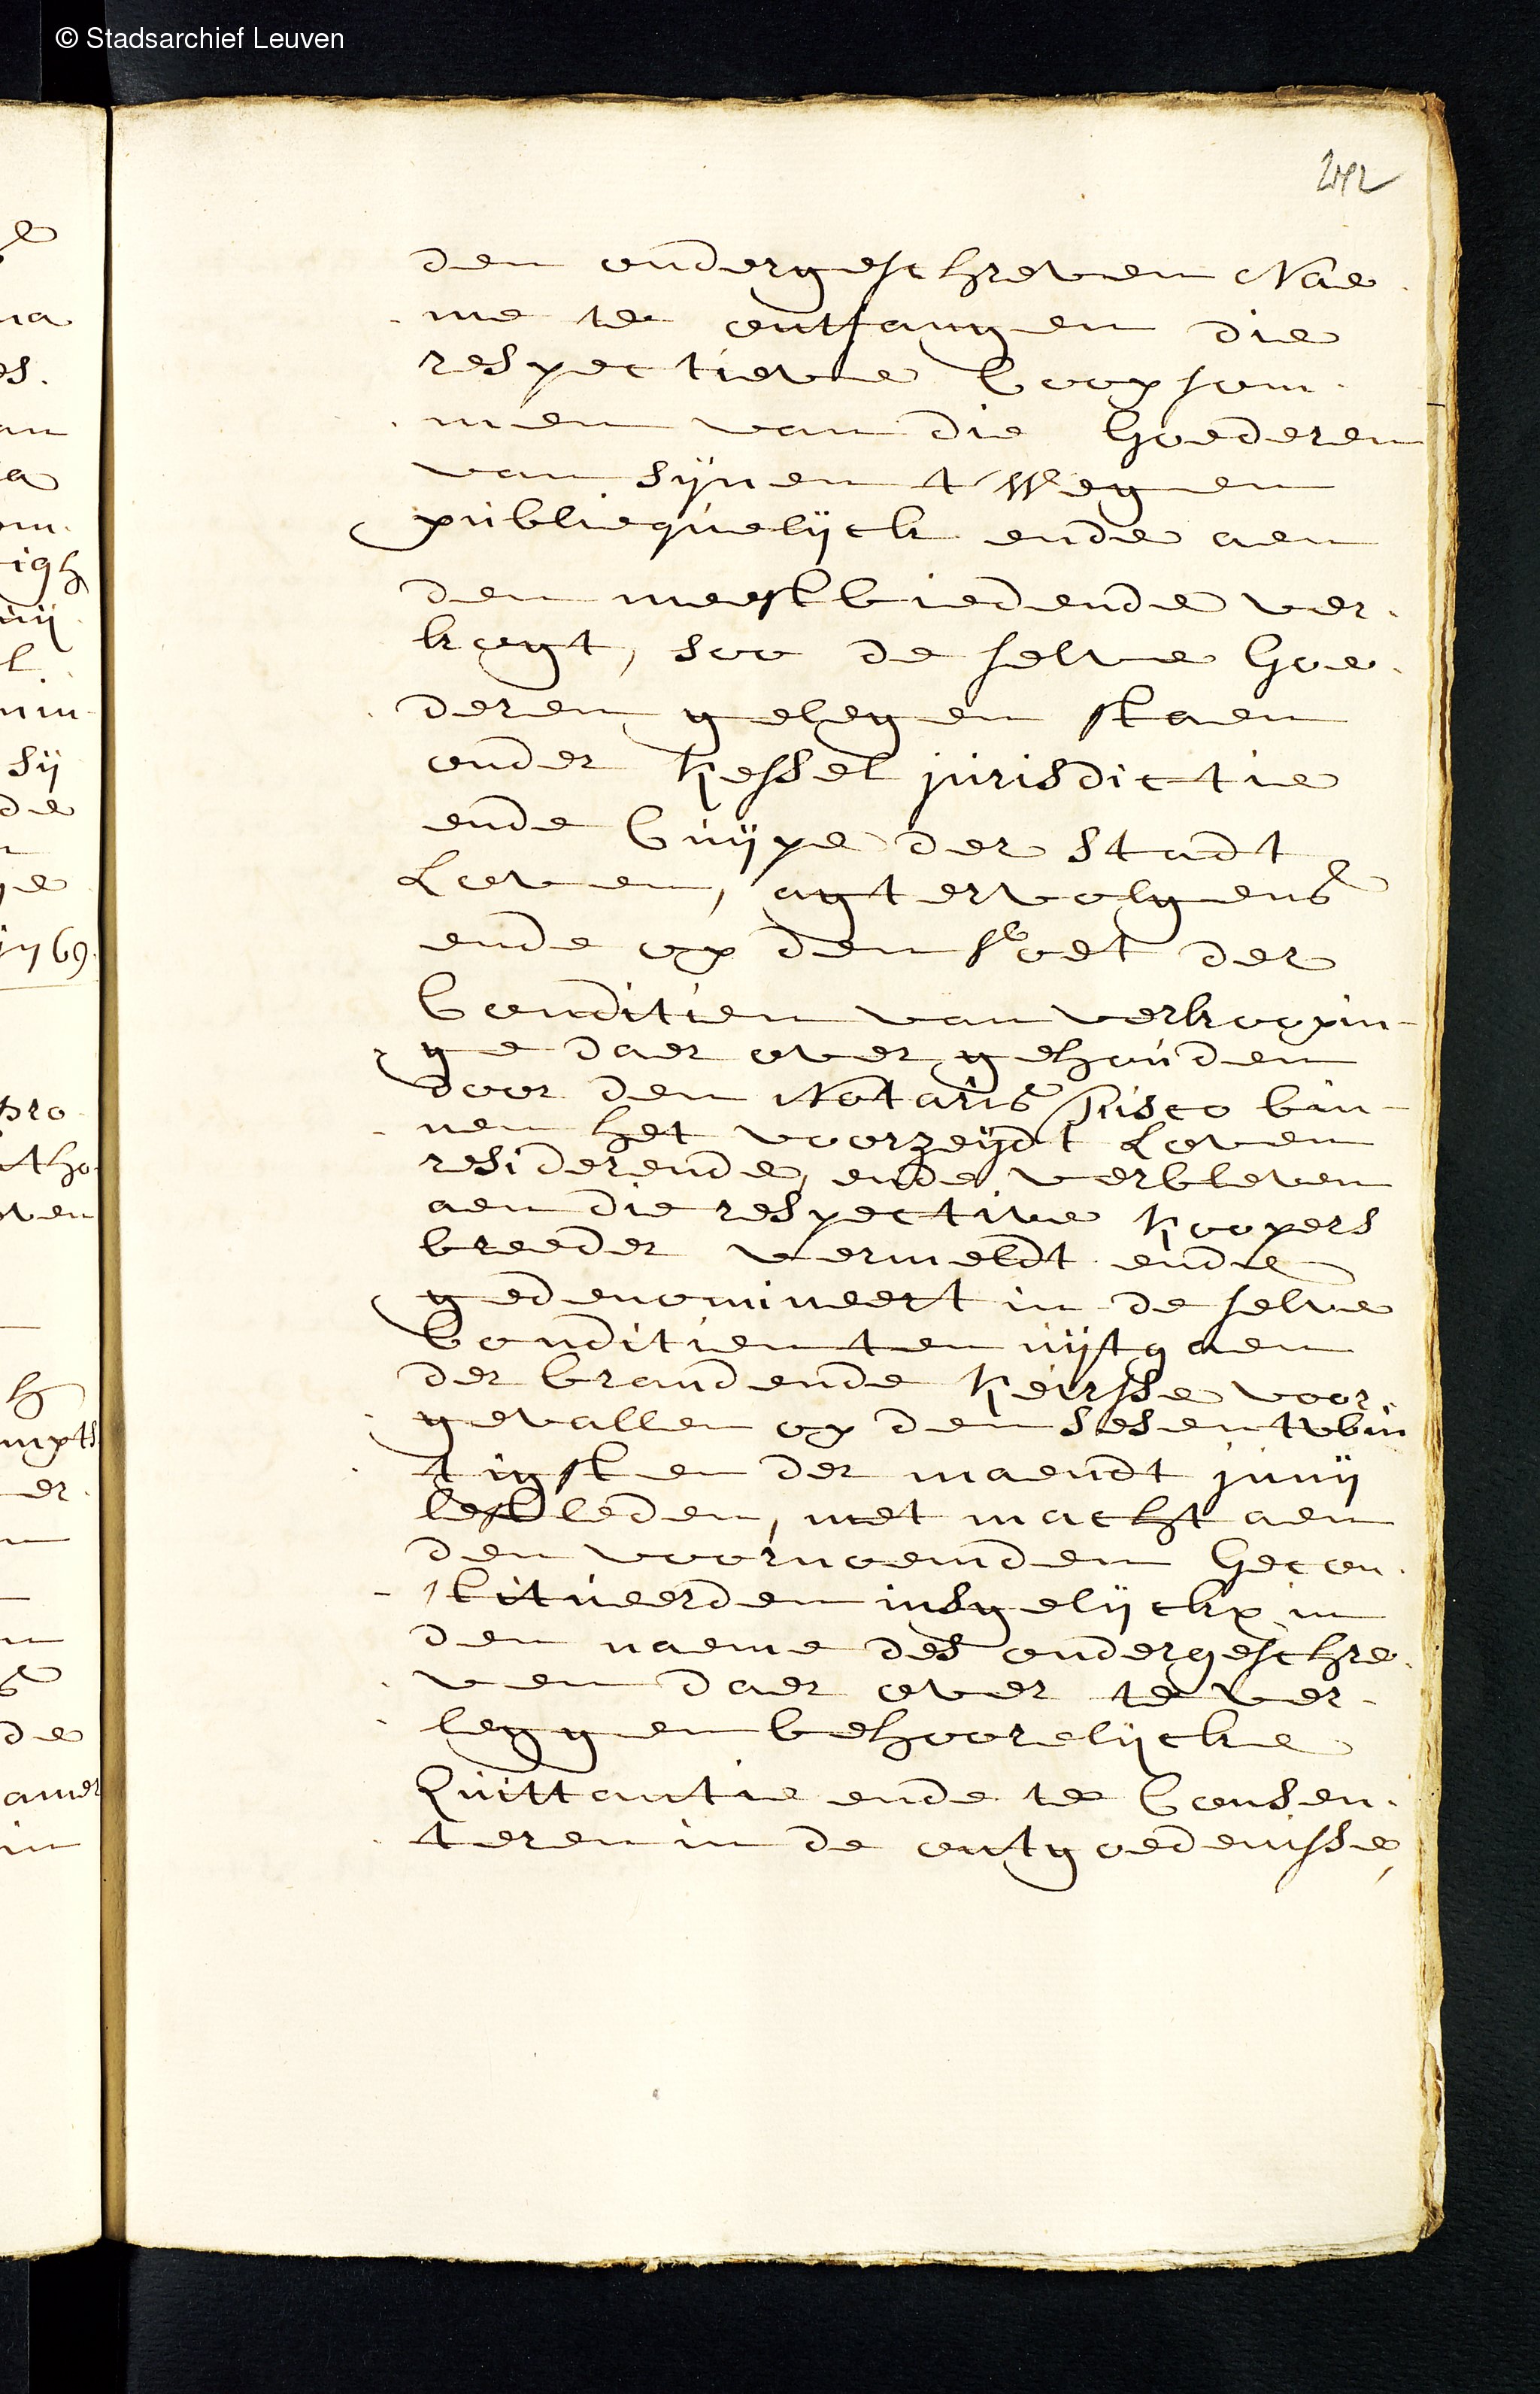 © Stadsarchief Leuven
242
den ondergeschreven Nae-
me te ontfangen die
respectieve Coopsom-
men van die Goederen
van sijnen t'Wegen
publiequelijck ende aen
den meestbiedende ver-
kogt, soo de selve Goe-
deren gelegen staen
onder Kessel jurisdictie
ende Cuijpe der Stadt
Loven, agtervolgens
ende op den voet der
Conditien van verkoopin-
ge daer over gehouden
door den Notaris bin-
nen het voorzeijdt Loven
residerende, ende verbleven
aen die respective Koopers
breeder vermeldt ende
gedenomineert in de selve
Conditien ten uijtgaen
der brandende Keirsse voor-
gevallen op den sesentwin
tigsten der maendt junij
lestleden, met macht aen
den voornoemden Gecon-
stitueerden insgelijckx in
den naeme des ondergeschre-
ven daer over te ver-
leggen behoorelijcke
Quittantie ende te Consen-
teren in de ontgoedenisse,